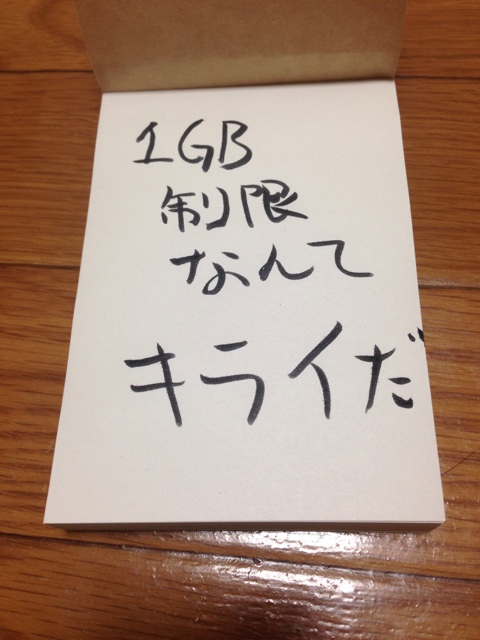 1GB
制限
なんて
キライだ